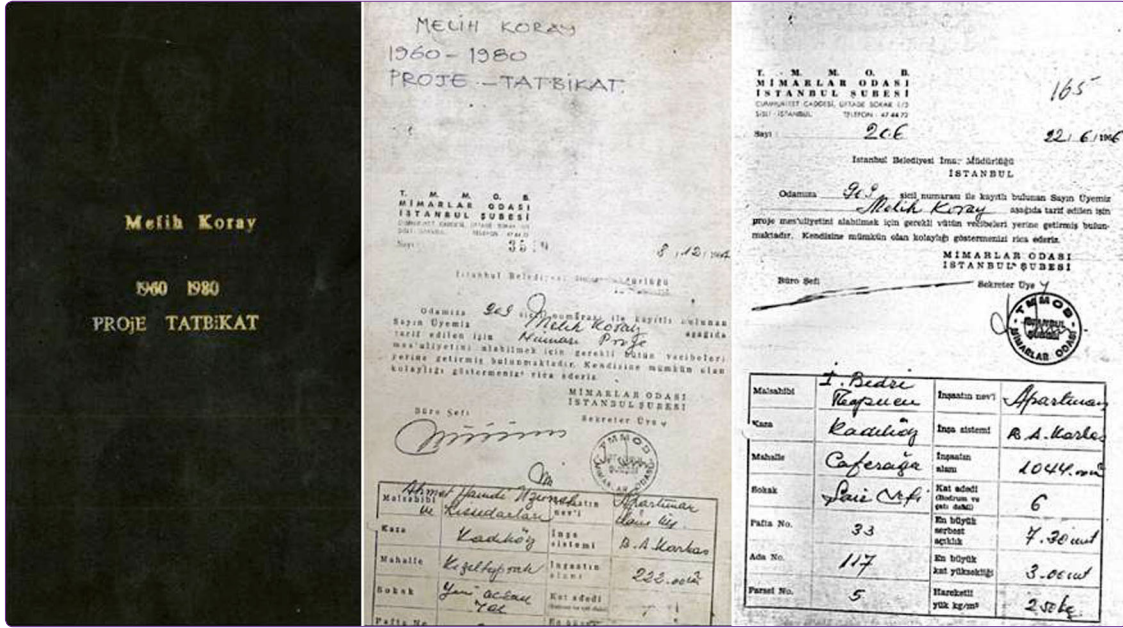 Melih Koray
1960 1980
PROjE TATBiKAT
MELİH KORAY
1960-1980
PROJE-TATBİKAT
T. M. M. O. B.
MİMARLAR ODASI
İSTANBUL ŞUBESİ
CUMHURİYET CADDESİ, ÜFTADE SOKAK 1/3
TELEFON : 47 44 72
Sayı :
8 .12.
İstanbul Belediyesi
Odamıza 909 sicil numarası ile kayıtlı bulunan
Sayın Üyemiz Melih Koray aşağıda
tarif edilen işin Mimari Proje
mes'uliyetini alabilmek için gerekli bütün vecibeleri
yerine getirmiş bulunmaktadır. Kendisine mümkün olan
kolaylığı göstermenizi rica ederiz.
MİMARLAR ODASI
İSTANBUL ŞUBESİ
Büro Şefi Sekreter Üye
TMMOB
Malsahibi Ahmet Hamdi ve hissedarları İnşaatın nev'i Apartman
Kaza Kadıköy İnşa sistemi B.A. Karkas
Mahalle Kızıltoprak İnşaatın alanı 222.00 m²
Sokak Yeni açılan Yol Kat adedi
Pafta No.
T. M. M. O. B.
MİMARLAR ODASI
İSTANBUL ŞUBESİ
CUMHURİYET CADDESİ, ÜFTADE SOKAK 1/3
ŞİŞLİ - İSTANBUL TELEFON : 47 44 72
165
Sayı : 206 22/6/1966
İstanbul Belediyesi İmar Müdürlüğü
İSTANBUL
Odamıza 909 sicil numarası ile kayıtlı bulunan Sayın Üyemiz
Melih Koray aşağıda tarif edilen işin
proje mes'uliyetini alabilmek için gerekli vütün vecibeleri yerine getirmiş bulun-
maktadır. Kendisine mümkün olan kolaylığı göstermenizi rica ederiz.
MİMARLAR ODASI
İSTANBUL ŞUBESİ
Büro Şefi Sekreter Üye
TMMOB
İSTANBUL
ŞUBESİ
MİMARLAR ODASI
Malsahibi İ. Bedri İnşaatın nev'i Apartman
Kaza Kadıköy İnşa sistemi B.A. Karkas
Mahalle Caferağa İnşaatın alanı 1044.00 m²
Sokak Şair Nefi Kat adedi (Bodrum ve çatı dahil) 6
Pafta No. 33 En büyük serbest açıklık 7.30 mt
Ada No. 117 En büyük kat yüksekliği 3.00 mt
Parsel No. 5 Hareketli yük kg/m² 250 kg